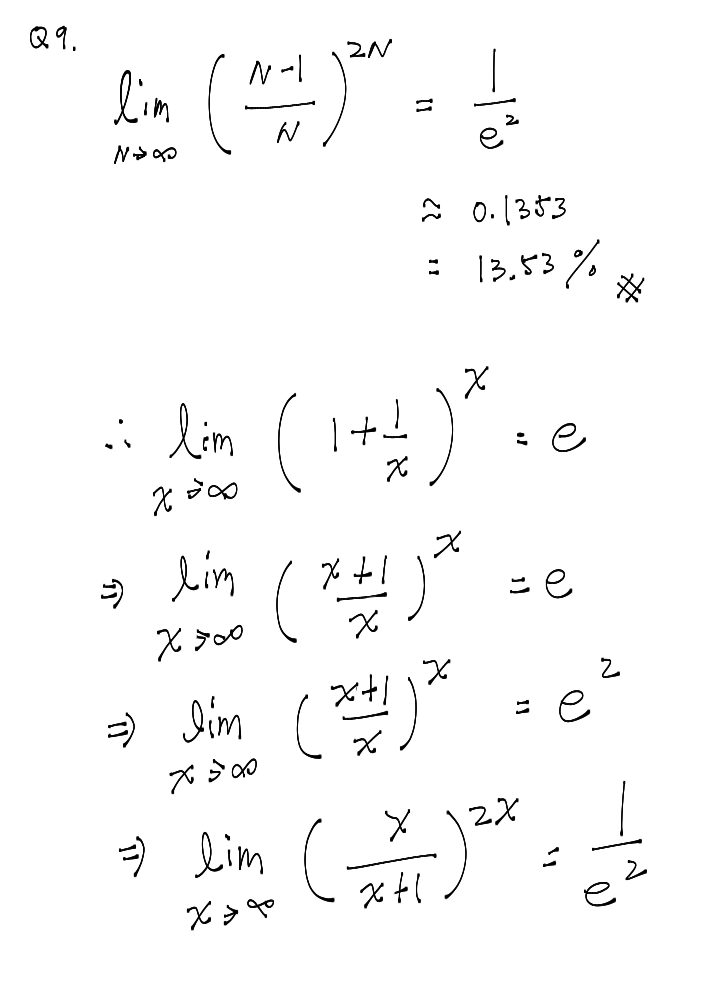 Q9.
lim_{N→∞} ( (N-1)/N )^{2N} = 1/e^2
≈ 0.1353
= 13.53 % ※
∴ lim_{x→∞} ( 1 + 1/x )^x = e
⇒ lim_{x→∞} ( (x+1)/x )^x = e
⇒ lim_{x→∞} ( (x+1)/x )^x = e^2
⇒ lim_{x→∞} ( x/(x+1) )^{2x} = 1/e^2